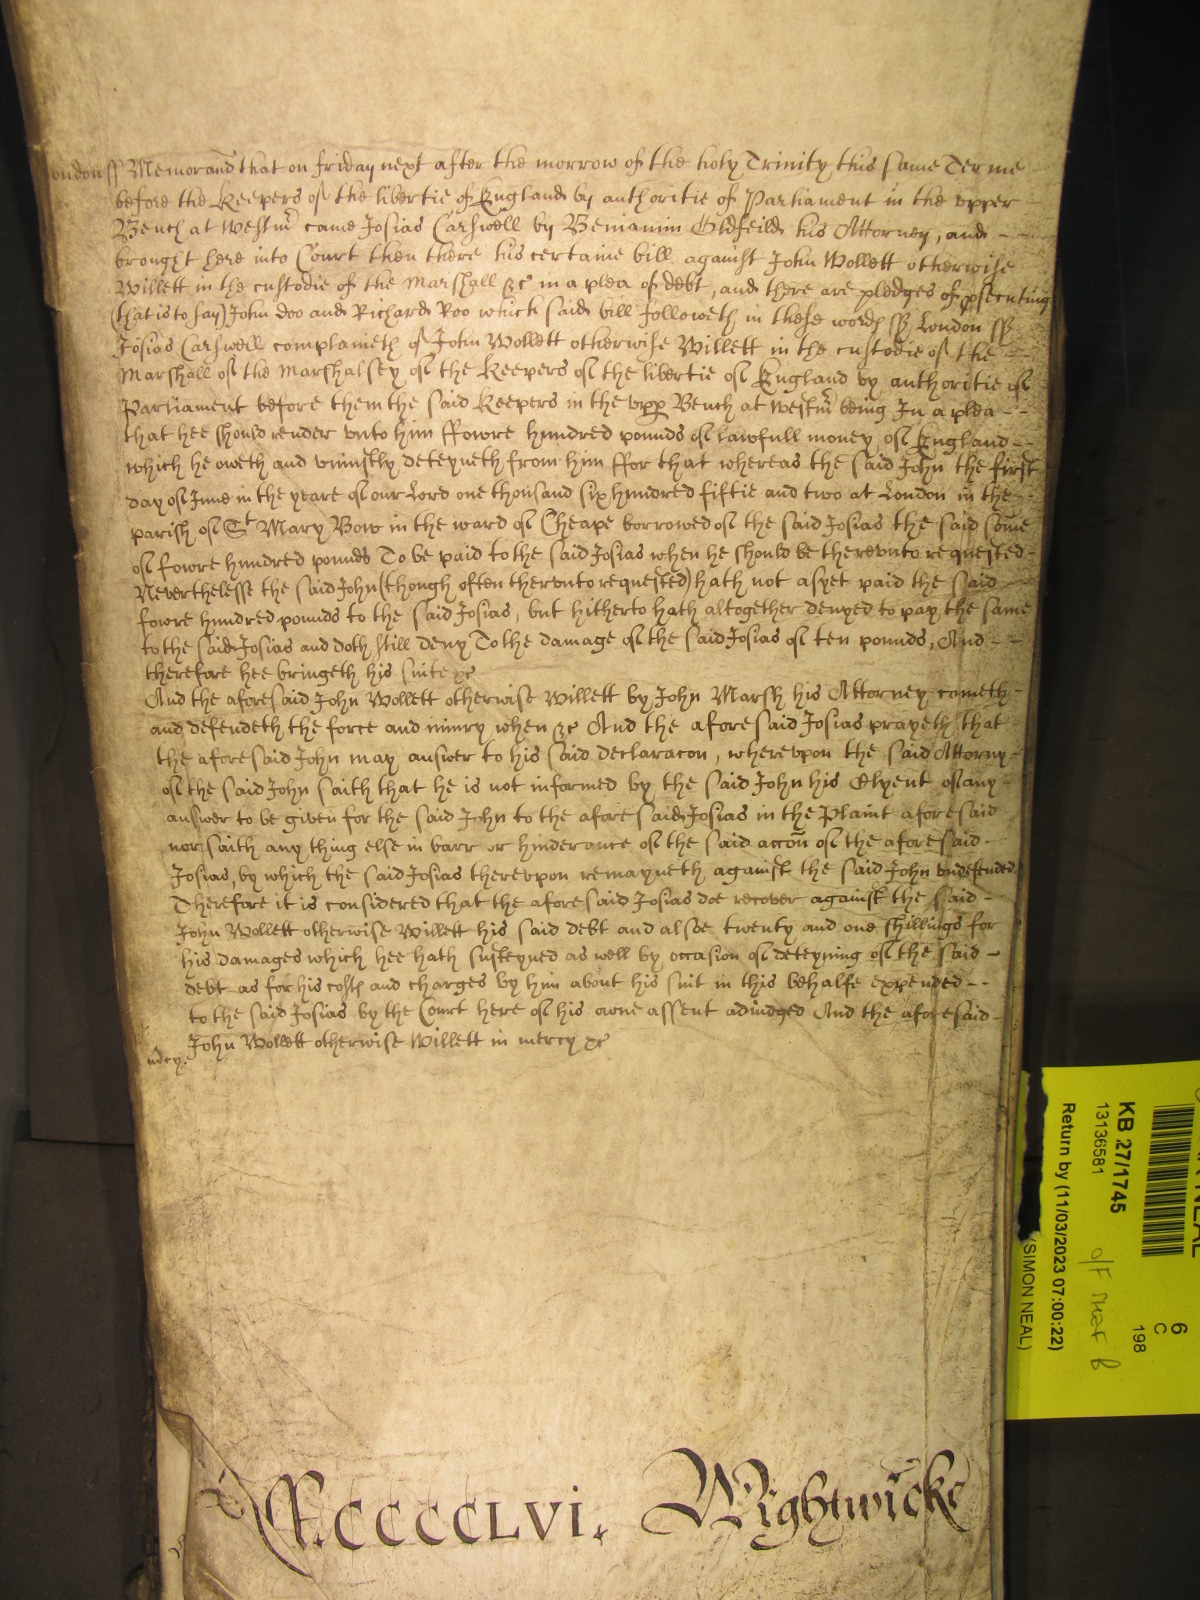 London ss Memorand that on friday next after the morrow of the holy Trinity this same Terme
before the Keepers of the libertie of England by authoritie of Parliament in the vpper
Bench at Westmr came Josias Carswell by Beniamin Oldfeild his Attorney, and
brought here into Court then there his certaine bill against John Wollett otherwise
Willett in the custodie of the Marshall &c in a plea of debt, and there are pledges of psecuting
(that is to say) John Doo and Richard Roo which said bill followeth in these words ss London ss
Josias Carswell complaineth of John Wollett otherwise Willett in the custodie of the
Marshall of the Marshalsey of the Keepers of the libertie of England by authoritie of
Parliament before them the said Keepers in the vpp Bench at Westmr being In a plea
that hee should render vnto him ffowre hundred pounds of lawfull money of England
which he oweth and vniustly deteyneth from him ffor that whereas the said John the first
day of June in the yeare of our Lord one thousand six hundred fiftie and two at London in the
parish of St Mary Bow in the ward of Cheape borrowed of the said Josias the said some
of fowre hundred pounds To be paid to the said Josias when he should be therevnto requested
Neverthelesse the said John (though often thervnto requested) hath not as yet paid the said
fowre hundred pounds to the said Josias, but hitherto hath altogether denyed to pay the same
to the said Josias and doth still deny To the damage of the said Josias of ten pounds, And
therefore hee bringeth his suite &c
And the aforesaid John Wollett otherwise Willett by John Marsh his Attorney cometh
and defendeth the force and iniury when &c And the aforesaid Josias prayeth that
the aforesaid John may answer to his said declaracon, wherevpon the said Attorny
of the said John saith that he is not informed by the said John his Clyent of any
answer to be given for the said John to the aforesaid Josias in the Plaint aforesaid
nor saith any thing else in barr or hinderance of the said accon of the aforesaid
Josias, by which the said Josias therevpon remayneth against the said John vndefended
Therefore it is considered that the aforesaid Josias doe recover against the said
John Wollett otherwise Willett his said debt and alsoe twenty and one shillings for
his damages which hee hath susteyned as well by occasion of deteyning of the said
debt as for his costs and charges by him about his suit in this behalfe expended
to the said Josias by the Court here of his owne assent adiudged And the aforesaid
John Wollett otherwise Willett in mercy &c
mercy.
CCCCCLVi. Wightwicke
KB 27/1745
13136581
Return by (11/03/2023 07:00:22)
(SIMON NEAL)
6
C
198